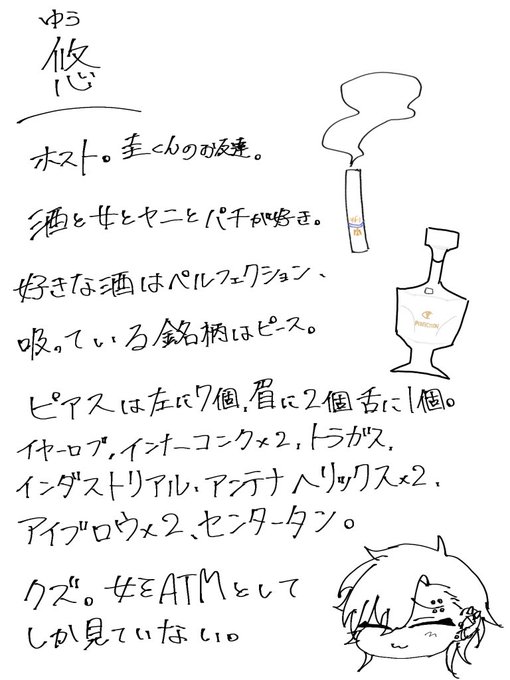 ゆう
悠
ホスト。圭くんのお友達。
酒と女とヤニとパチが好き。
好きな酒はペルフェクション、
吸っている銘柄はピース。
PERFECTION
ピアスは左に7個、眉に2個舌に1個。
イヤーロブ、インナーコンク×2、トラガス、
インダストリアル、アンテナヘリックス×2、
アイブロウ×2、センタータン。
クズ。女をATMとして
しか見ていない。